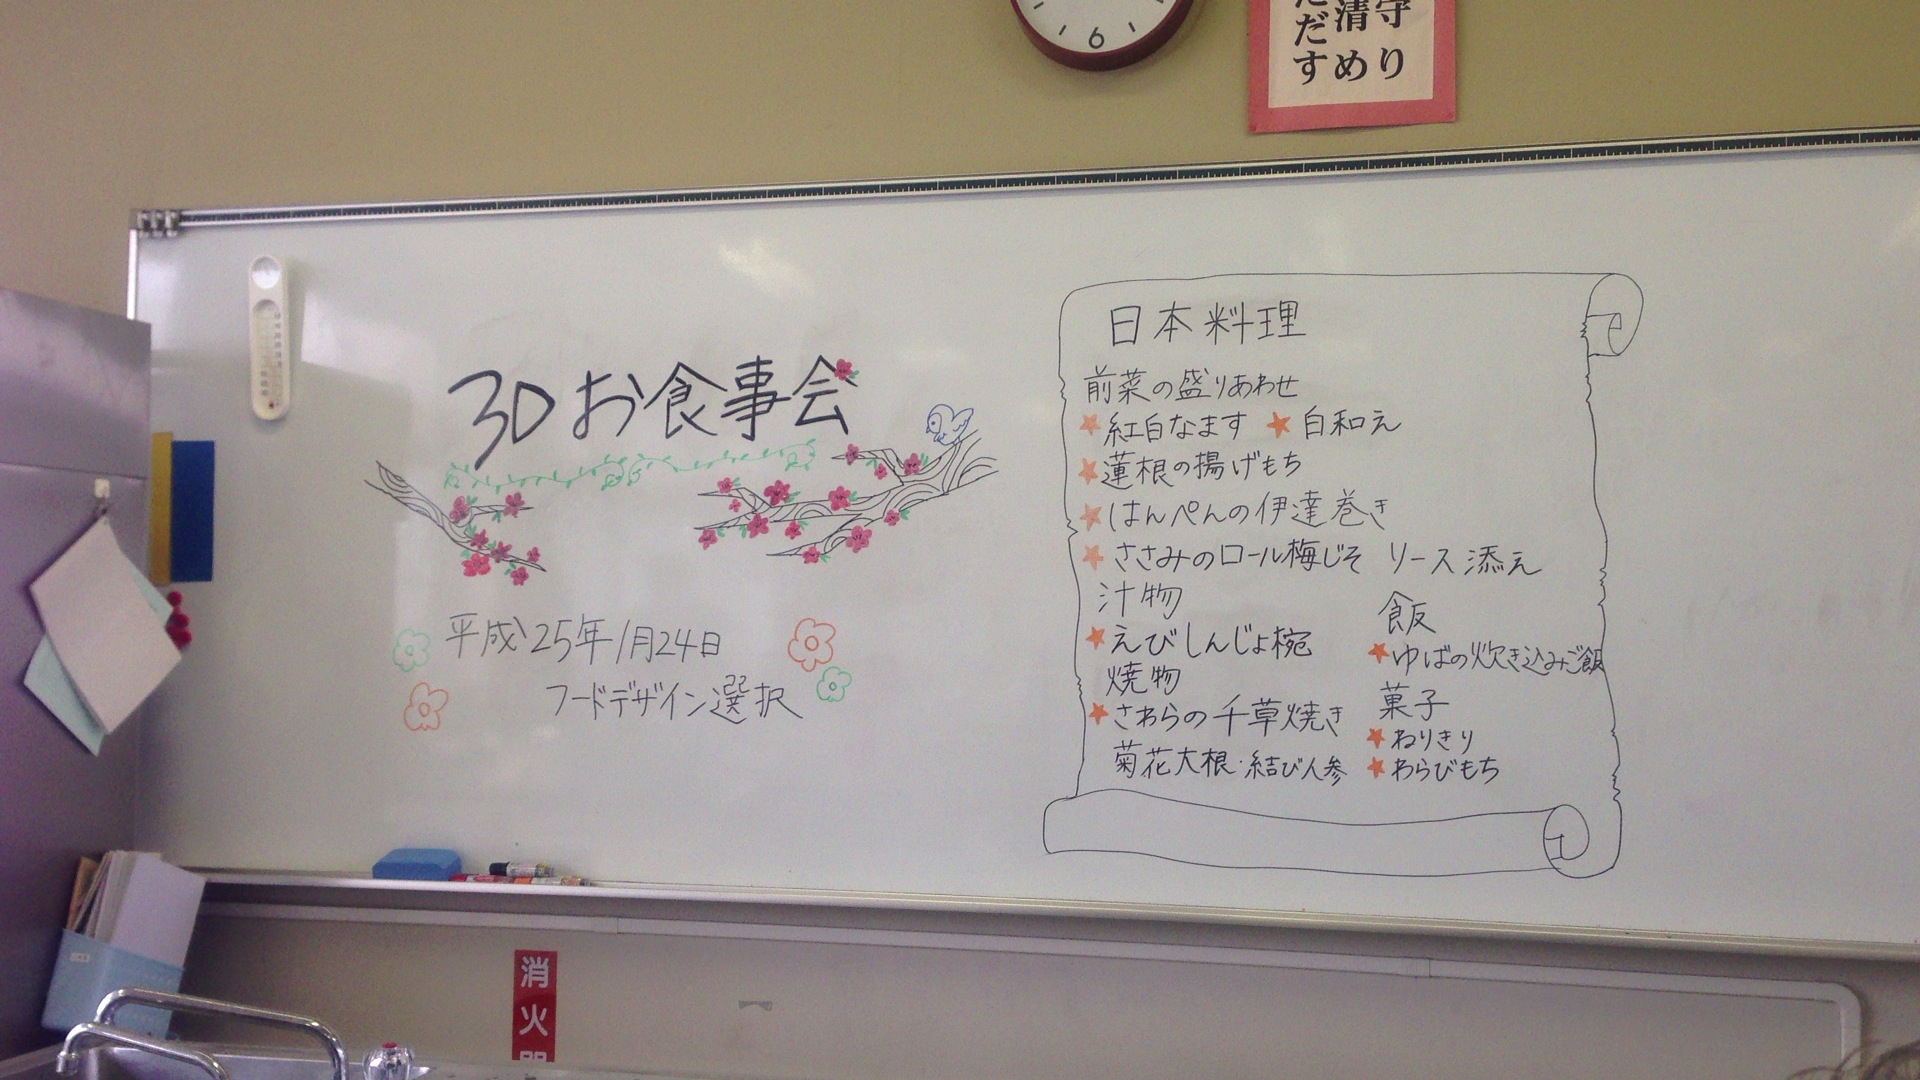 6
守り
清め
ただす
3Dお食事会
平成25年1月24日
フードデザイン選択
日本料理
前菜の盛りあわせ
★紅白なます ★白和え
★蓮根の揚げもち
★はんぺんの伊達巻き
★ささみのロール梅じそ リース添え
汁物
★えびしんじょ椀
焼物
★さわらの千草焼き
菊花大根・結び人参
飯
★ゆばの炊き込みご飯
菓子
★ねりきり
★わらびもち
消火